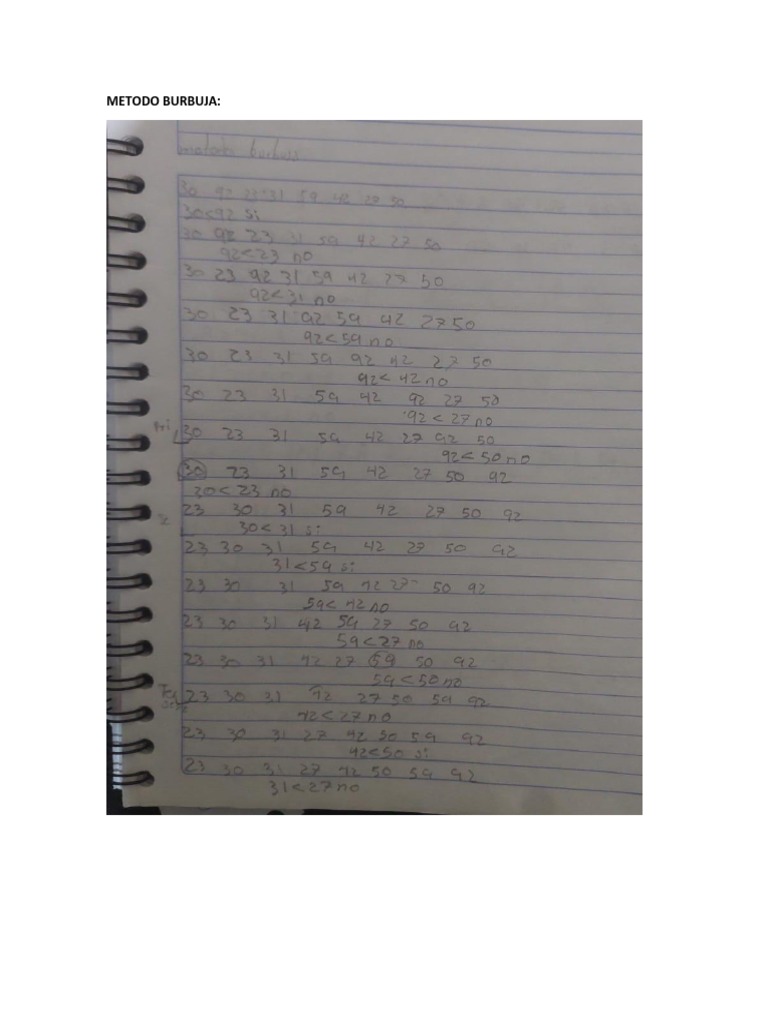 METODO BURBUJA:
metodo burbuja
30 92 23 31 59 42 27 50
30<92 si
30 92 23 31 59 42 27 50
92<23 no
30 23 92 31 59 42 27 50
92<31 no
30 23 31 92 59 42 27 50
92<59 no
30 23 31 59 92 42 27 50
92< 42 no
30 23 31 59 42 92 27 50
92 < 27 no
Pri 30 23 31 59 42 27 92 50
92< 50 no
30 23 31 59 42 27 50 92
30< 23 no
23 30 31 59 42 27 50 92
30< 31 si
23 30 31 59 42 27 50 92
31<59 si
23 30 31 59 42 27 50 92
59< 42 no
23 30 31 42 59 27 50 92
59<27 no
23 30 31 42 27 59 50 92
59<50 no
23 30 31 42 27 50 59 92
42<27 no
23 30 31 27 42 50 59 92
42<50 si
23 30 31 27 42 50 59 92
31<27 no